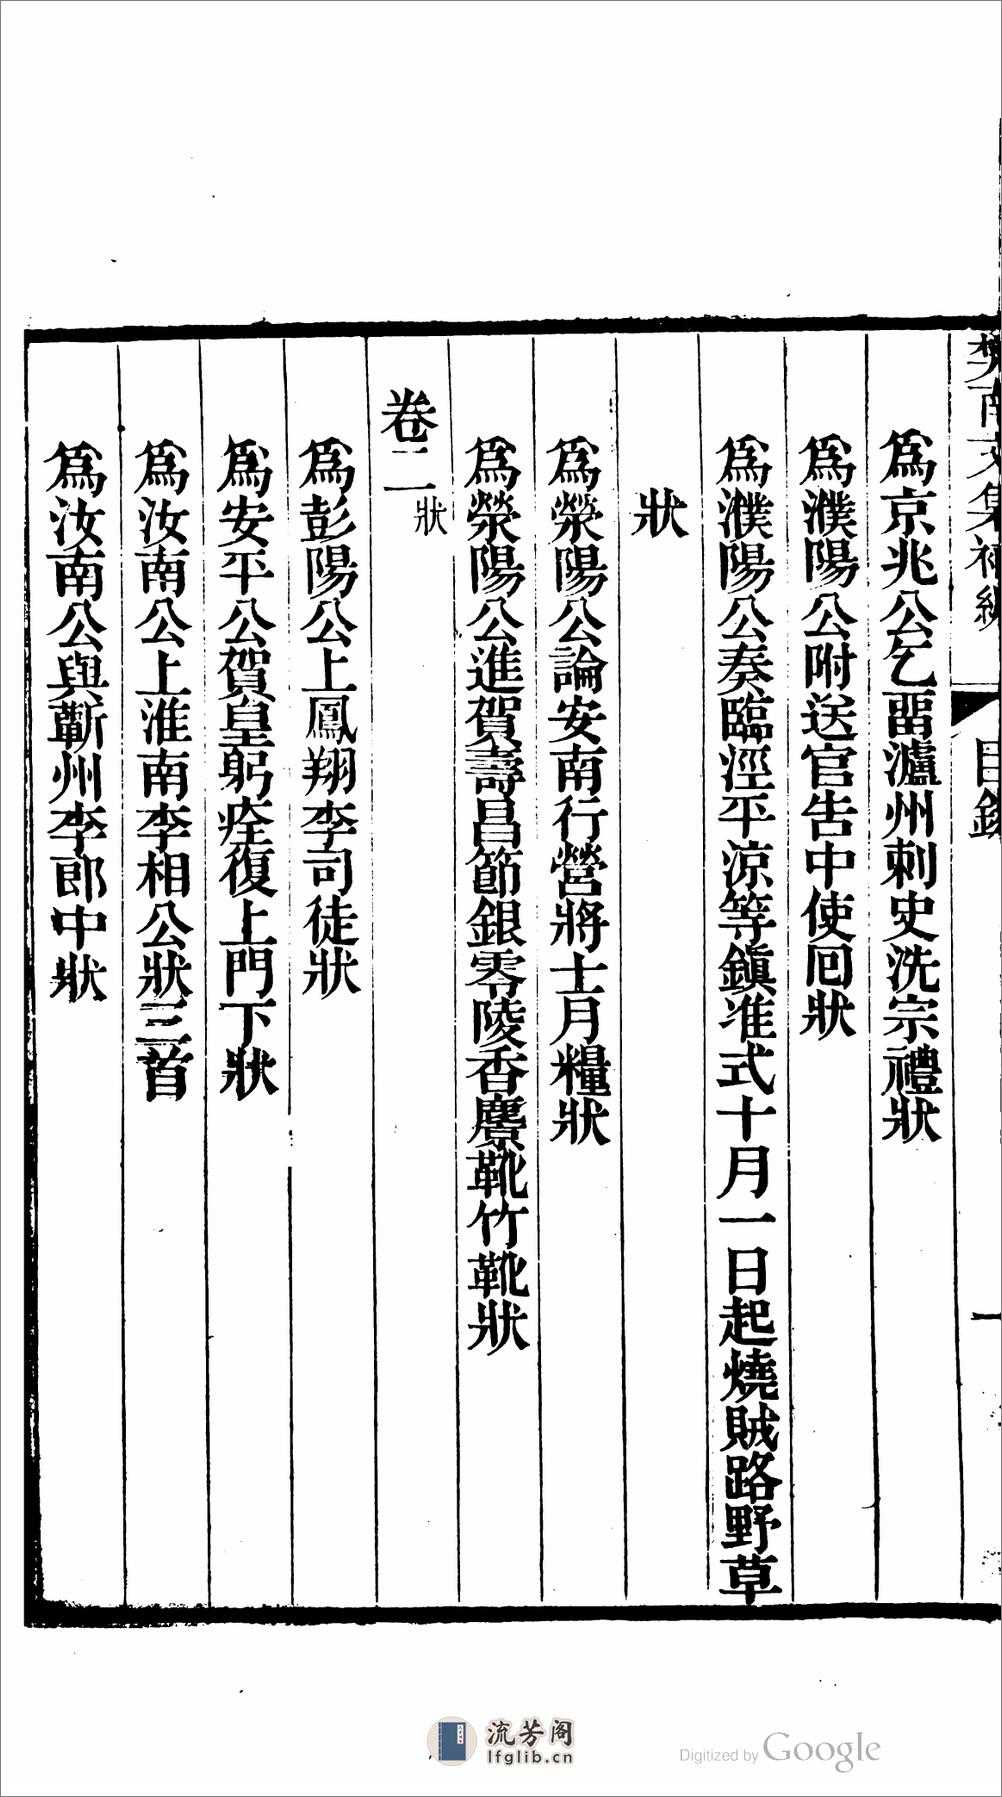 樊南文集補編
目錄
一
爲京兆公乞畱瀘州刺史洗宗禮狀
爲濮陽公附送官告中使回狀
爲濮陽公奏臨涇平涼等鎮准式十月一日起燒賊路野草
狀
爲滎陽公論安南行營將士月糧狀
爲滎陽公進賀壽昌節銀零陵香麖靴竹靴狀
卷二狀
爲彭陽公上鳳翔李司徒狀
爲安平公賀皇躬痊復上門下狀
爲汝南公上淮南李相公狀三首
爲汝南公與蘄州李郎中狀
流芳阁
lfglib.cn
Digitized by Google